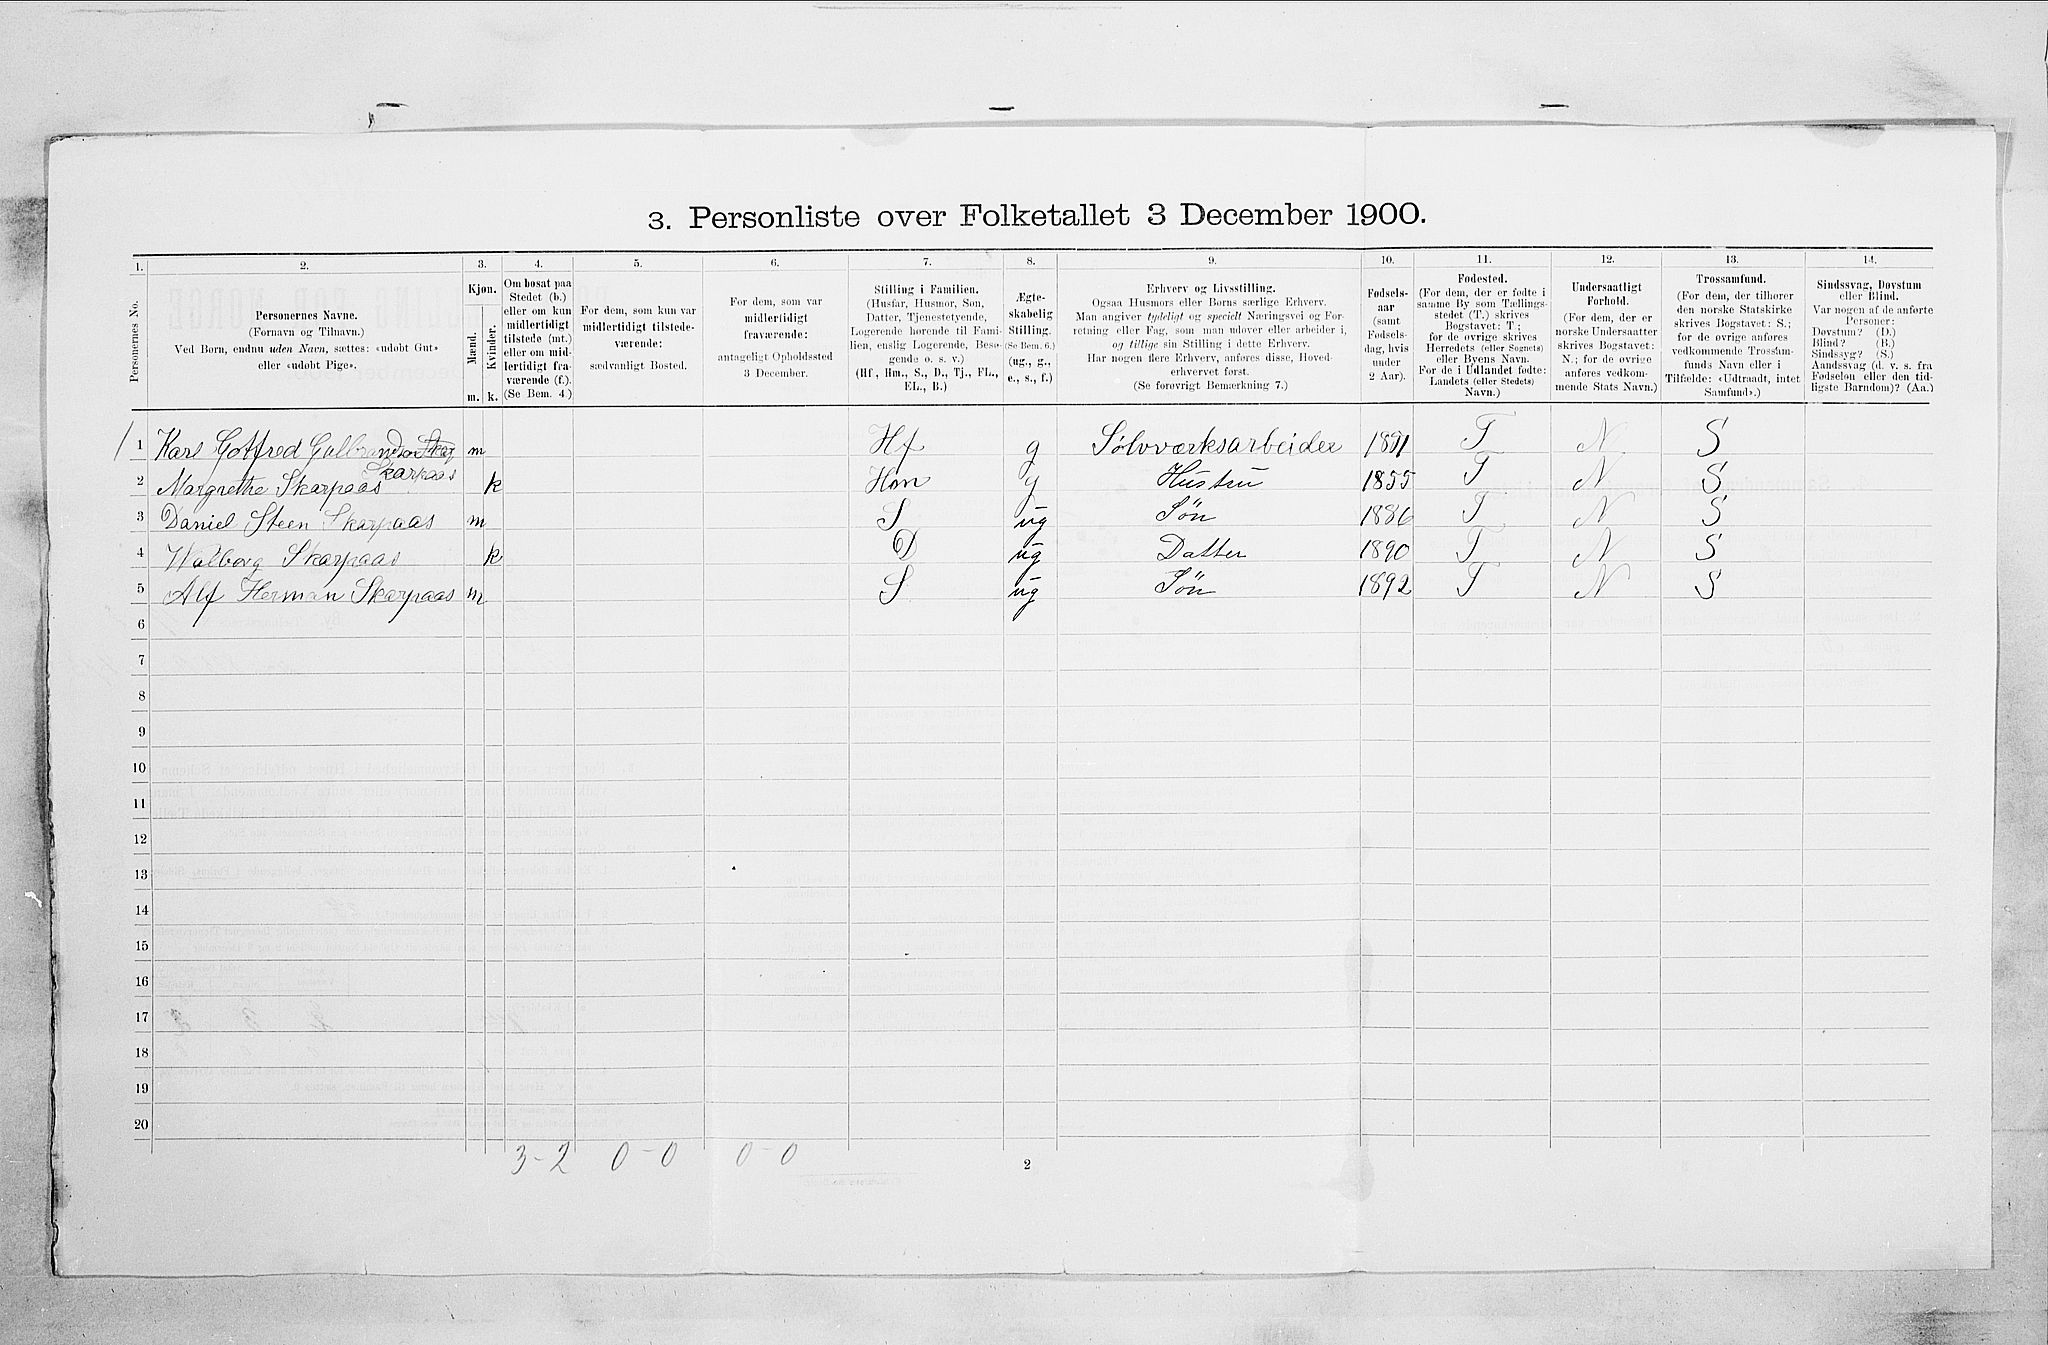 3. Personliste over Folketallet 3 December 1900.
1. 2. 3. 4. 5. 6. 7. 8. 9. 10. 11. 12. 13. 14.
Personernes No.
Personernes Navne.
(Fornavn og Tilnavn.)
Ved Børn, endnu uden Navn, sættes: «udøbt Gut»
eller «udøbt Pige».
Kjøn.
Mænd.
Kvinder.
m. k.
Om bosat paa
Stedet (b.)
eller om kun
midlertidigt
tilstede (mt.)
eller om mid-
lertidigt fra-
værende (f.).
(Se Bem. 4.)
For dem, som kun var
midlertidigt tilstede-
værende:
sædvanligt Bosted.
For dem, som var
midlertidigt
fraværende:
antageligt Opholdssted
3 December.
Stilling i Familien.
(Husfar, Husmor, Søn,
Datter, Tjenestetyende,
Logerende hørende til Fami-
lien, enslig Logerende, Besø-
gende o. s. v.)
(Hf, Hm., S., D., Tj., FL.,
EL., B.)
Ægte-
skabelig
Stilling.
(Se Bem. 6.)
(ug., g.,
e., s., f.)
Erhverv og Livsstilling.
Ogsaa Husmors eller Børns særlige Erhverv.
Man angiver tydeligt og specielt Næringsvei og For-
retning eller Fag, som man udøver eller arbeider i,
og tillige sin Stilling i dette Erhverv.
Har nogen flere Erhverv, anføres disse, Hoved-
erhvervet først.
(Se forøvrigt Bemærkning 7.)
Fødsels-
aar
(samt
Fødsels-
dag, hvis
under
2 Aar).
Fødested.
(For dem, der er fødte i
samme By som Tællings-
stedet (T.) skrives
Bogstavet: T;
for de øvrige skrives
Herredets (eller Sognets)
eller Byens Navn.
For de i Udlandet fødte:
Landets (eller Stedets)
Navn.)
Undersaatligt
Forhold.
(For dem, der er
norske Undersaatter
skrives Bogstavet:
N.; for de øvrige
anføres vedkom-
mende Stats Navn.)
Trossamfund.
(For dem, der tilhører
den norske Statskirke
skrives Bogstavet: S.;
for de øvrige anføres
vedkommende Trossam-
funds Navn eller i
Tilfælde: «Udtraadt, intet
Samfund».)
Sindssvag, Døvstum
eller Blind.
Var nogen af de anførte
Personer:
Døvstum? (D.)
Blind? (B.)
Sindssyg? (S.)
Aandssvag (d. v. s. fra
Fødselen eller den tid-
ligste Barndom)? (Aa.)
1 Karl Gotfred Gulbrandsen Skar m Hf g Sølvværksarbeider 1891 T N S
Skarpaas
2 Margrethe Skarpaas k Hm g Hustru 1855 T N S
3 Daniel Steen Skarpaas m S ug Søn 1886 T N S
4 Walborg Skarpaas k D ug Datter 1890 T N S
5 Alf Herman Skarpaas m S ug Søn 1892 T N S
6
7
8
9
10
11
12
13
14
15
16
17
18
19
20
3-2 0-0 0-0
2